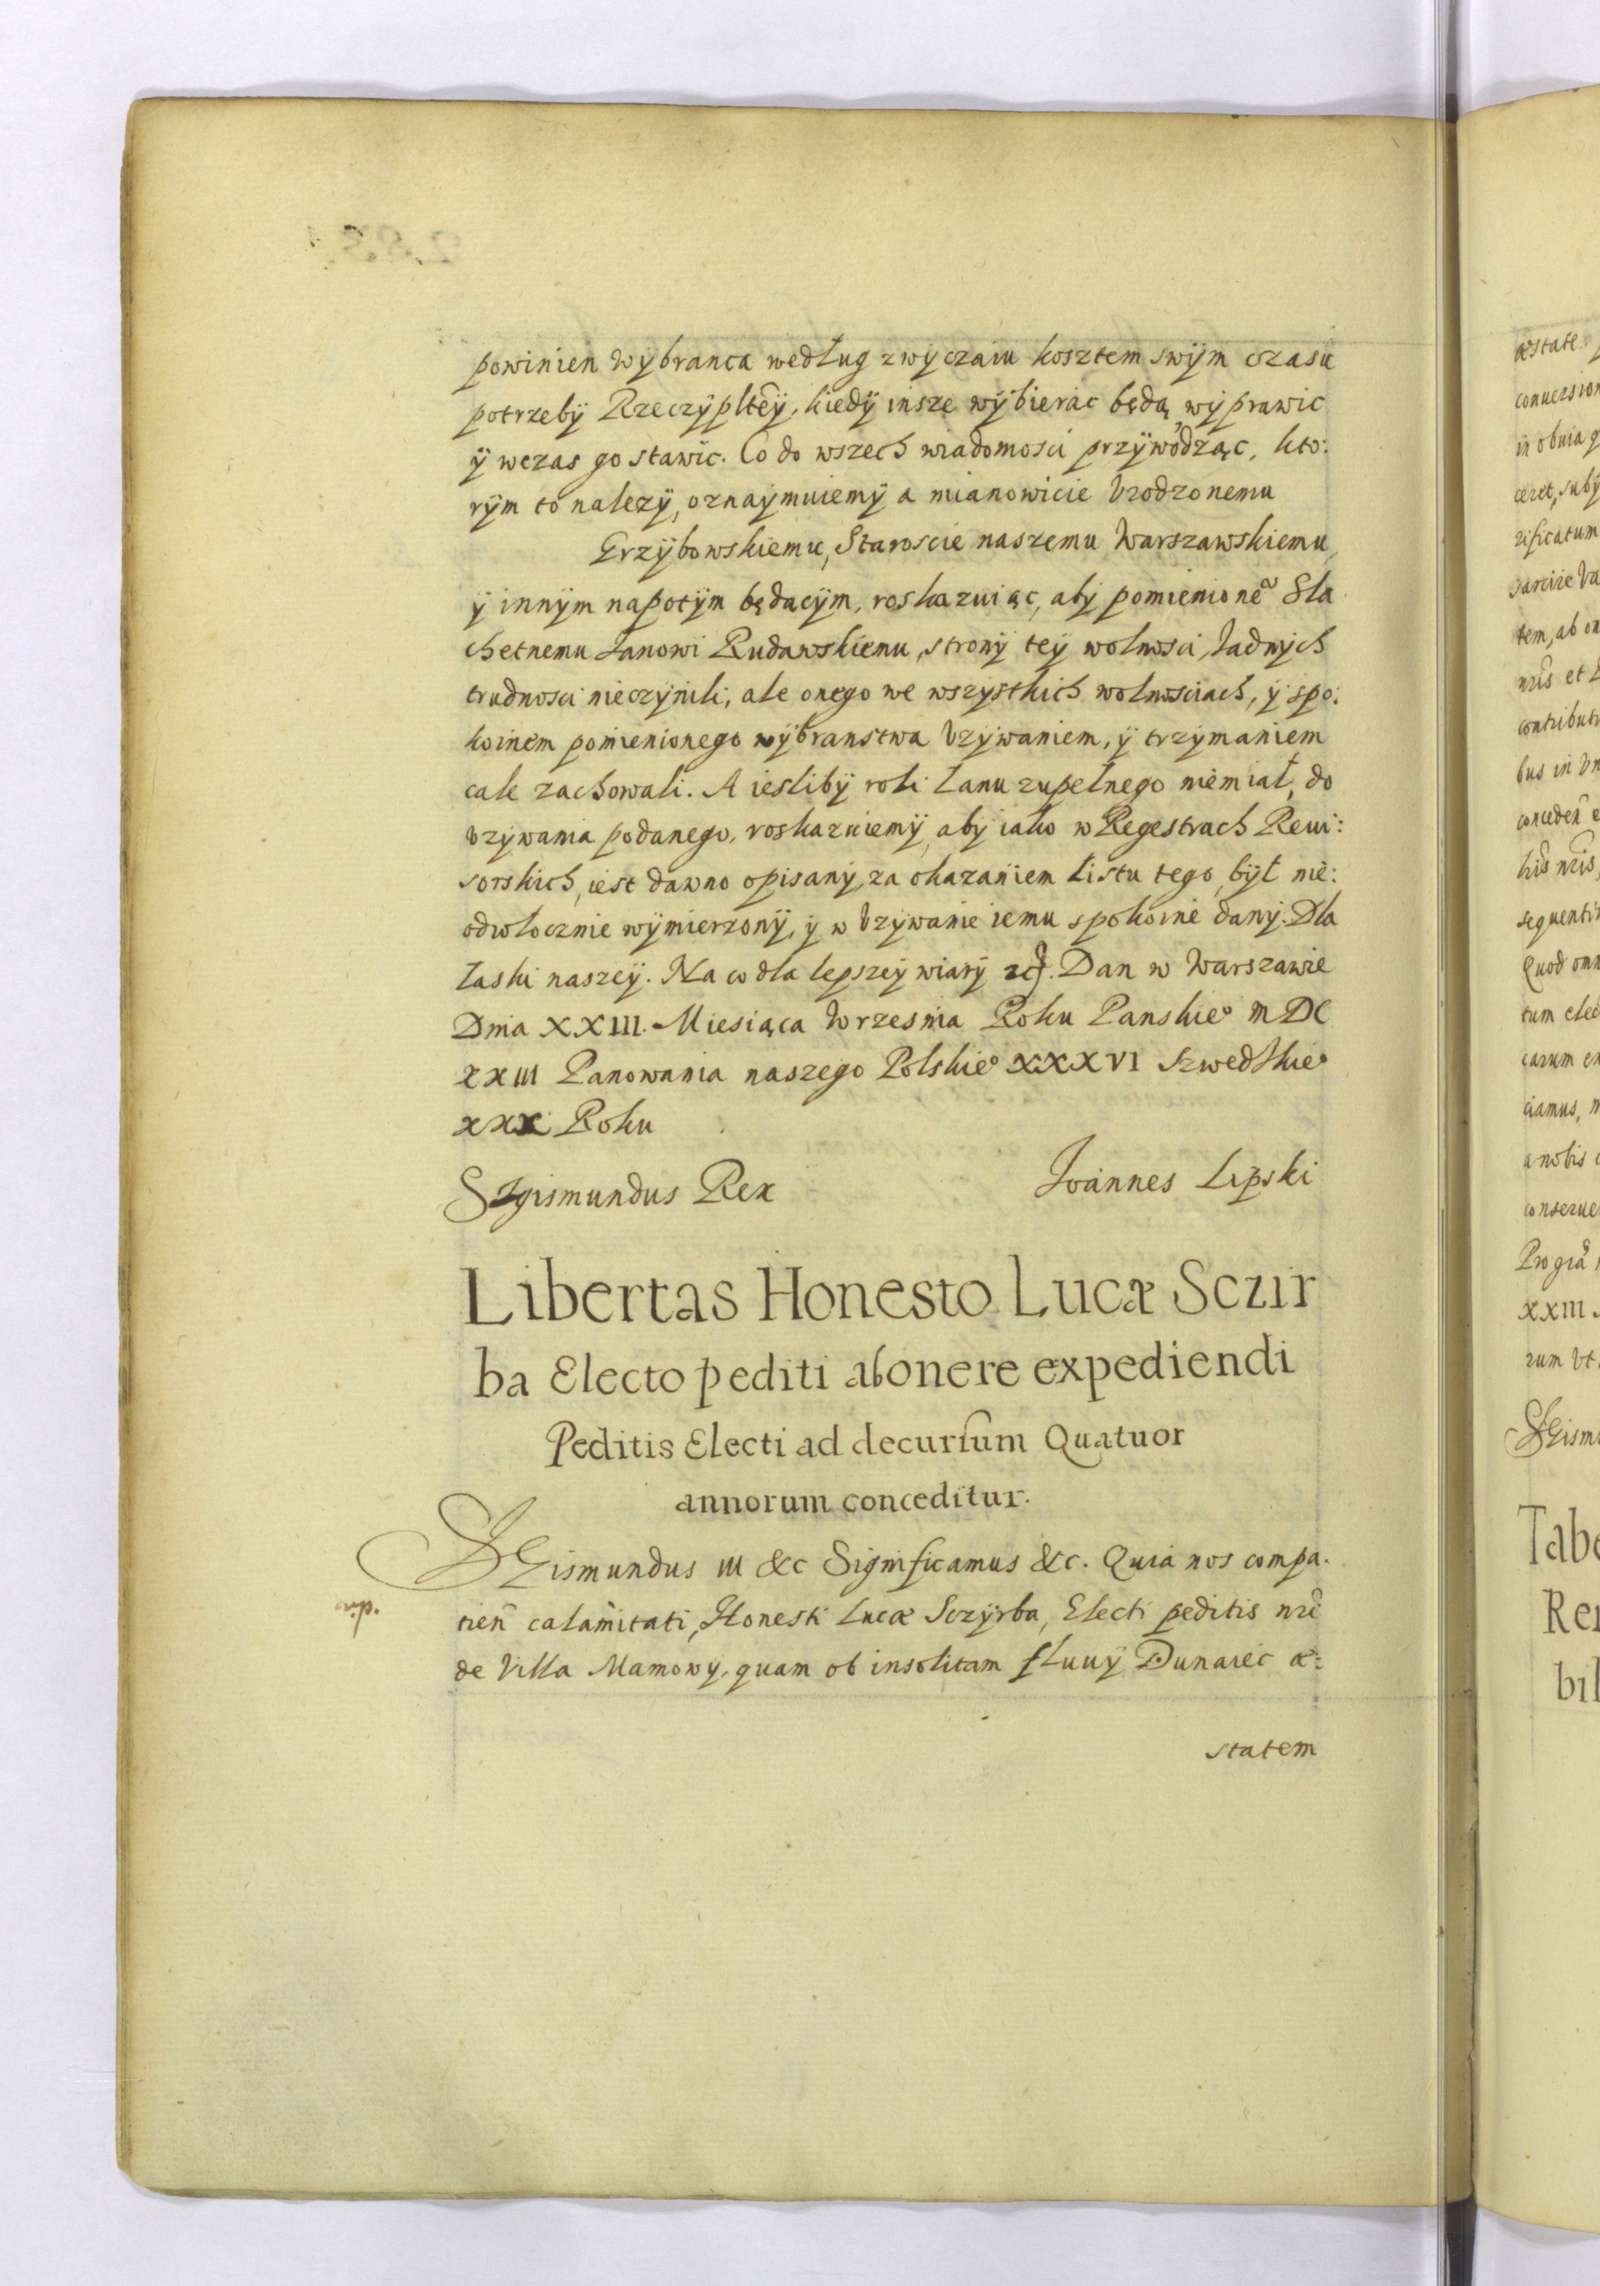 powinien wybranca według zwyczaiu kosztem swÿm czasu
potrzebÿ Rzeczÿpltẽÿ, kiedÿ insze wÿbierac będą wÿprawic
ÿ wczas go stawic. Co do wszech wiadomosci przÿwodząc, kto:
rÿm to nalezÿ, oznaÿmuiemÿ a mianowicie Vrodzonemu
Grzÿbowskiemu, Staroscie naszemu Warszawskiemu,
ÿ innÿm napotÿm będacÿm, roskazuiąc, abÿ pomienionẽ Sla
chetnemu Janowi Rudawskiemu, stronÿ teÿ wolnosci, żadnÿch
trudnosci nieczÿnili, ale onego we wszÿstkich wolnosciach, ÿ spo:
koinem pomienionego wÿbranstwa Vzÿwaniem, ÿ trzÿmaniem
cale zachowali. A ieslibÿ roli łanu zupełnego niemiał, do
Vzÿwania podanego, roskazuiemÿ, abÿ iako w Regestrach Rewi:
sorskich, iest dawno opisanÿ, za okazaniem listu tego, bÿł nie:
odwłocznie wÿmierzonÿ, ÿ w Vzÿwanie iemu spokoine danÿ. Dla
łaski naszeÿ. Na co dla lepszeÿ wiarÿ etc. Dan w Warszawie
Dnia XXIII. Miesiąca Wrzesnia Roku Panskieº MDC
XXIII Panowania naszego Polskieº XXXVI Szwedskieº
XXX Roku
Sigismundus Rex Joannes Lipski
Libertas Honesto Lucæ Sczir
ba Electo pediti ab onere expediendi
Peditis Electi ad decursum Quatuor
annorum conceditur.
SGismundus III &c Significamus &c. Quia nos compa.
tieñ calamitati, Honesti Lucæ Sczÿrba, Electi peditis nrĩ
de Villa Mamowÿ, quam ob insolitam fluuÿ Dunaiec æ:
statem